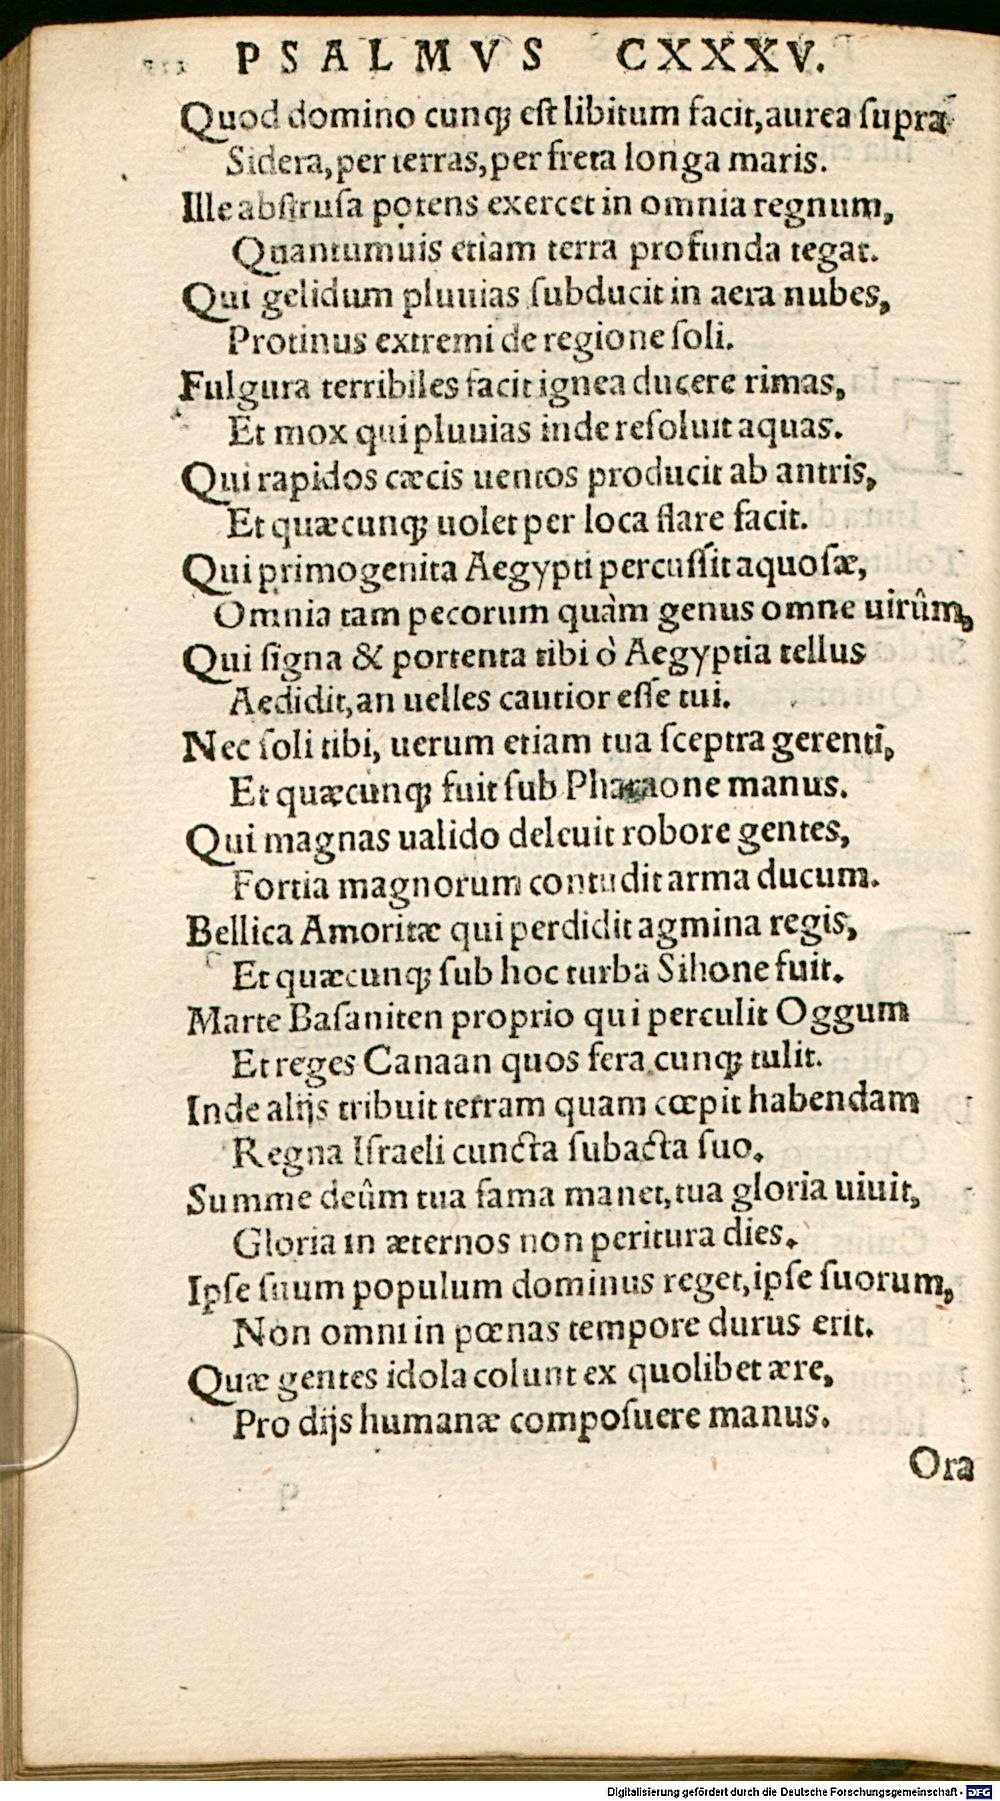 PSALMVS CXXXV.
Quod domino cunqꝫ est libitum facit, aurea supra
Sidera, per terras, per freta longa maris.
Ille abstrusa potens exercet in omnia regnum,
Quantumuis etiam terra profunda tegat.
Qui gelidum pluuias subducit in aera nubes,
Protinus extremi de regione soli.
Fulgura terribiles facit ignea ducere rimas,
Et mox qui pluuias inde resoluit aquas.
Qui rapidos cæcis uentos producit ab antris,
Et quæcunqꝫ uolet per loca flare facit.
Qui primogenita Aegypti percussit aquosæ,
Omnia tam pecorum quàm genus omne uirûm,
Qui signa & portenta tibi ò Aegyptia tellus
Aedidit, an uelles cautior esse tui.
Nec soli tibi, uerum etiam tua sceptra gerenti,
Et quæcunqꝫ fuit sub Pharaone manus.
Qui magnas ualido deleuit robore gentes,
Fortia magnorum contudit arma ducum.
Bellica Amoritæ qui perdidit agmina regis,
Et quæcunqꝫ sub hoc turba Sihone fuit.
Marte Basaniten proprio qui perculit Oggum
Et reges Canaan quos fera cunqꝫ tulit.
Inde alijs tribuit terram quam cœpit habendam
Regna Israeli cuncta subacta suo.
Summe deûm tua fama manet, tua gloria uiuit,
Gloria in æternos non peritura dies.
Ipse suum populum dominus reget, ipse suorum,
Non omni in pœnas tempore durus erit.
Quæ gentes idola colunt ex quolibet ære,
Pro dijs humanæ composuere manus.
Ora
Digitalisierung gefördert durch die Deutsche Forschungsgemeinschaft - DFG